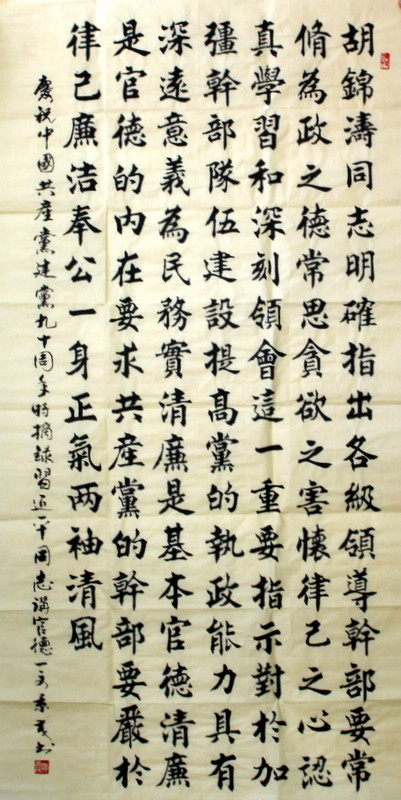 胡錦濤同志明確指出各級領導幹部要常
脩為政之德常思貪欲之害懷律己之心認
真學習和深刻領會這一重要指示對於加
彊幹部隊伍建設提高黨的執政能力具有
深遠意義為民務實清廉是基本官德清廉
是官德的内在要求共産黨的幹部要嚴於
律己廉洁奉公一身正氣两袖清風
慶祝中國共産黨建黨九十周年特摘錄習近平同志講官德一文